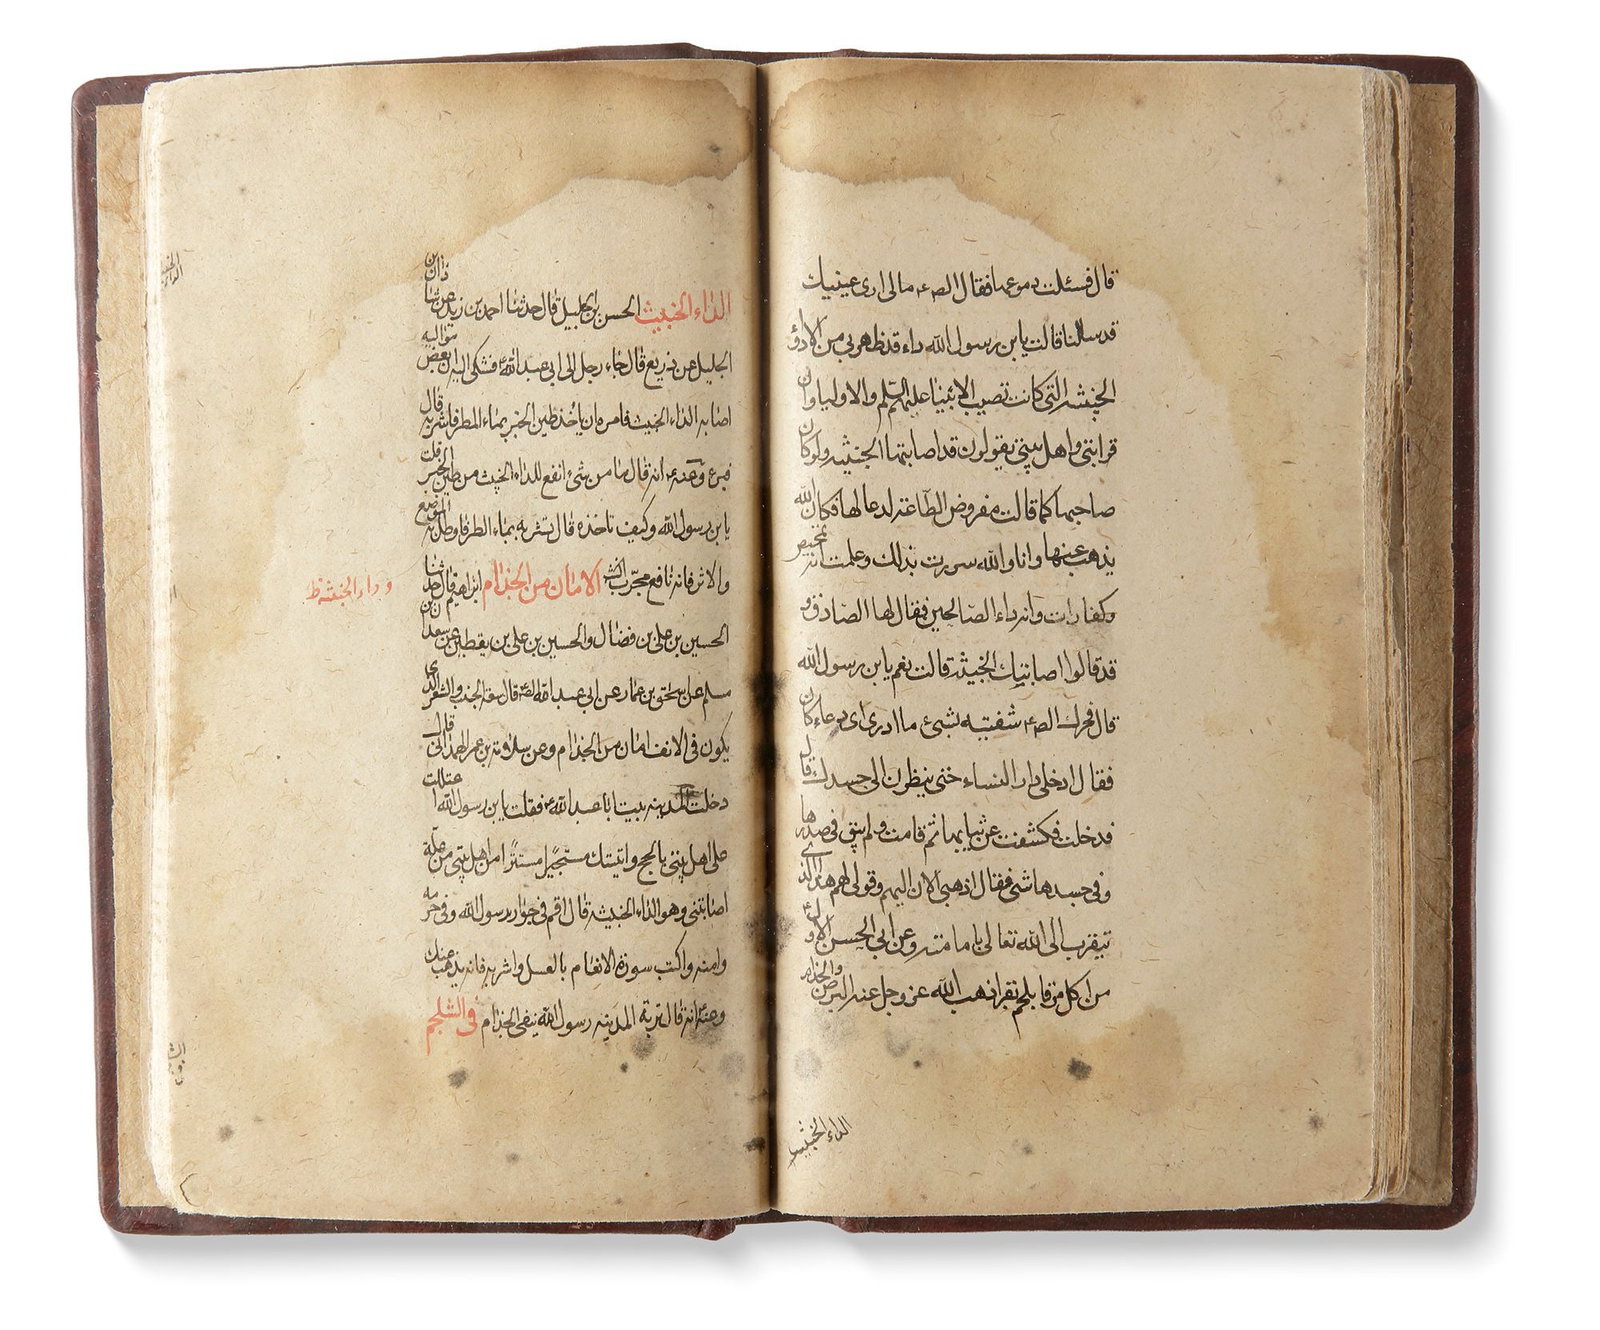 قال فسئلت دموعها فقال الصـ ع ما لى ارى عينيك
قد سالنا قالت يا بن رسول الله داء قد ظهر بى من الادؤ
الخبيثه التى كانت تصيب الانبيا عليهم السلم والاوليا وان
قرابتى واهل بيتى يقولون قد اصابتها الخبيثه ولو كان
صاحبها كما قالت مفروض الطاعة لدعا لها فكان الله
يذهب عنها وانا والله سررت بذلك وعلمت انه تمحيص
وكفارات وانه داء الصالحين فقال لها الصادق و
قد قالوا اصابتك الخبيثه قالت نعم يا بن رسول الله
قال فحرك الصـ ع شفتيه بشىء ما ادرى اى دعاء كان
فقال ادخلى دار النساء حتى ينظرن الى جسدك قال
فدخلت فكشفت عن ثيابها ثم قامت ولم يبق فى صدرها
وفى جسدها شى فقال اذهبى الان اليهم وقولى لهم هذا الذى
يتقرب الى الله تعالى بامامته وعن ابى الحسن الاول
من اكل مرقا بلحم بقر اذهب الله عز وجل عنه البرص والجذام
الداء الخبيث
الداء الخبيث الحسن بن الخليل قال حدثنا احمد بن زيد عن شاذان بن
الخليل عن ذريع قال جاء رجل الى ابى عبد الله ع فشكى اليه ان بعض مواليه
اصابه الداء الخبيث فامره ان ياخذ طين الحير بماء المطر فاشربه قال
فبرء وعنه ع انه قال ما من شىء انفع للداء الخبيث من طين الحير قلت
يا بن رسول الله وكيف ناخذه قال تشربه بماء المطر وطل به الموضع
والاثر فانه نافع مجرب الامان من الجذام ابراهيم قال حدثنا
وداء الخبيثه ظ
الحسين بن على بن فضال والحسين بن على بن يقطين عن سعدان بن
مسلم عن اسحق بن عمار عن ابى عبد الله الصـ قال الجنب والشعر الذى
يكون فى الانف امان من الجذام وعن سلامة بن عمر الهمدانى قال
دخلت المدينه بيت ابا عبد الله ع فقلت يا بن رسول الله اعتللت
على اهل بيتى بالحج واتيتك مستجيرا مستترا من اهل بيتى من علة
اصابتنى وهو الداء الخبيثة قال اقم فى جوار رسول الله وفى حرمه
وامنه واكتب سورة الانعام بالعسل واشربه فانه يذهب عنك
وعنه انه قال تربة المدينه رسول الله ينفى الجذام فى الشلجم